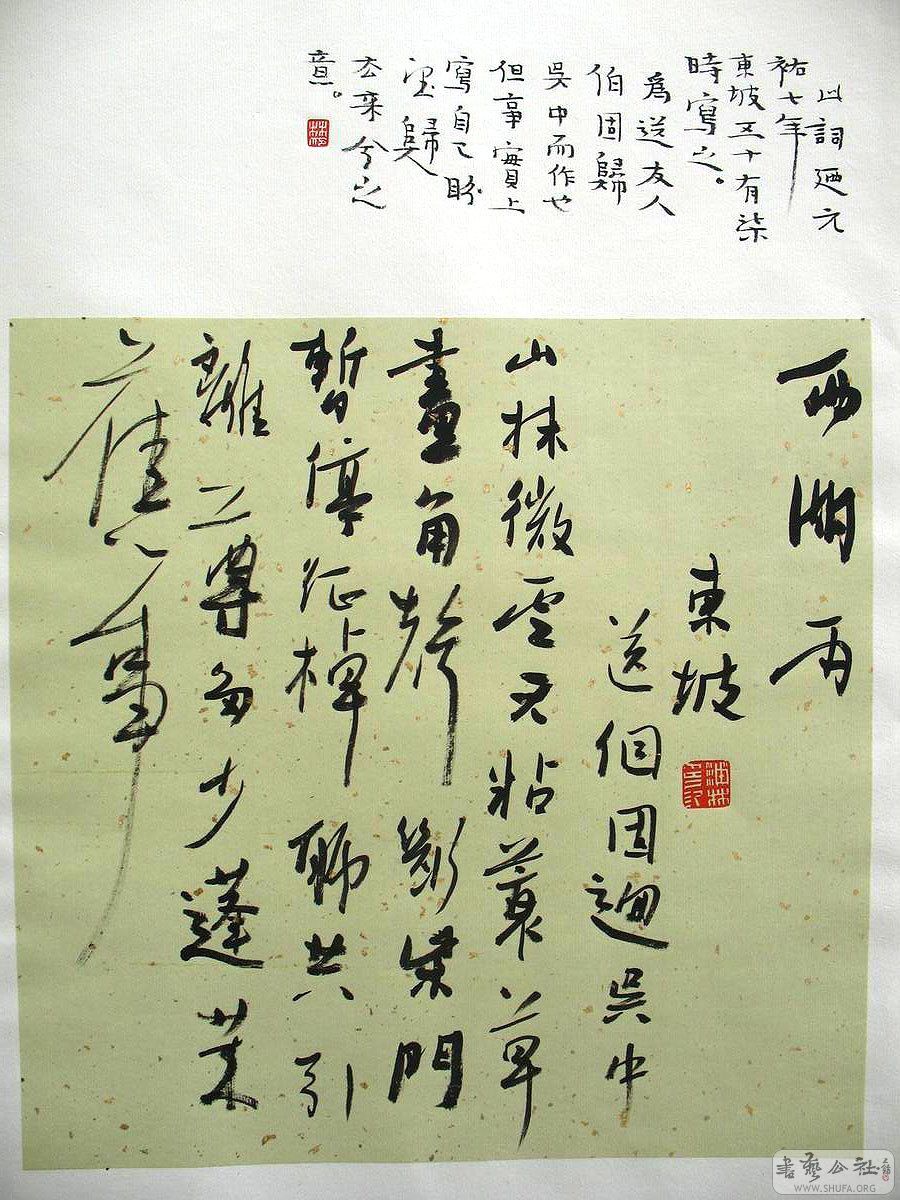 此詞廼元
祐七年
東坡五十有柒
時寫之。
爲送友人
伯固歸
吳中而作也
但事實上
寫自己盼
望歸
去來兮之
意。
西湖雨
東坡
送伯固迴吳中
山抹微雲天粘衰草
畫角聲斷柴門
暫停征棹聊共引
離尊多少蓬萊
舊事
書藝公社
WWW.SHUFA.ORG